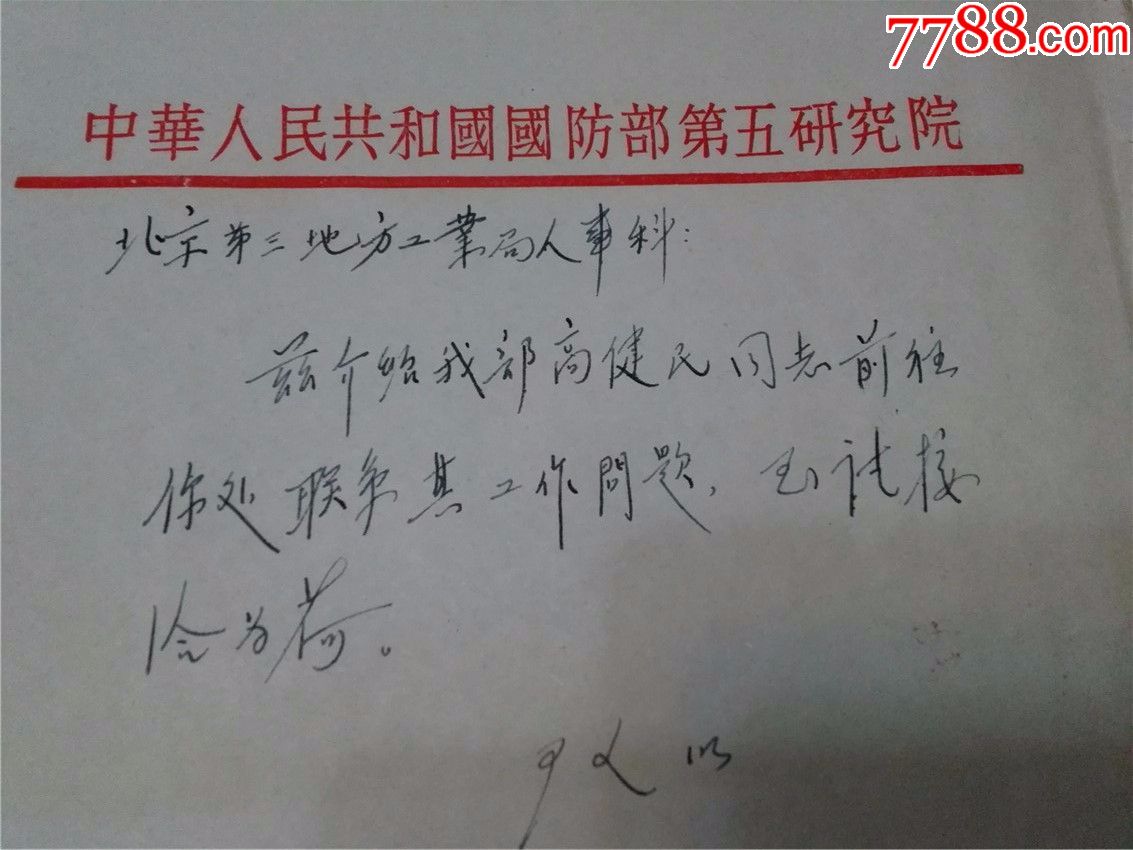 7788.com
中華人民共和國國防部第五研究院
北京第三地方工業局人事科:
兹介绍我部高健民同志前往
你处联系其工作問題, 请接
洽为荷。